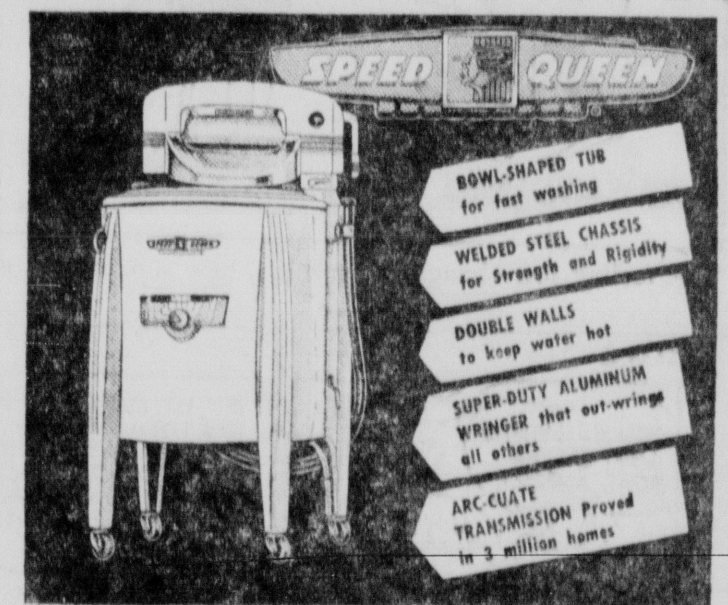 SPEED QUEEN
BOWL-SHAPED TUB
for fast washing
WELDED STEEL CHASSIS
for Strength and Rigidity
DOUBLE WALLS
to keep water hot
SUPER-DUTY ALUMINUM
WRINGER that out-wrings
all others
ARC-CUATE
TRANSMISSION Proved
in 3 million homes